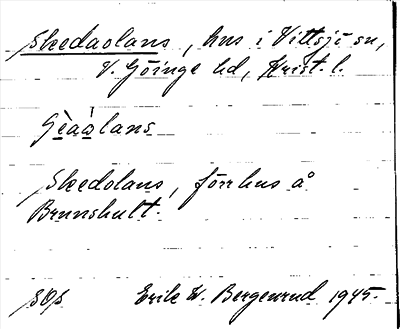 Skedaolans, hus i Vittsjö sn,
V. Göinge hd, Krist. l.
Skedolans, förr hus å
Brunshult.
sOs Erik W. Bergenrud 1945.